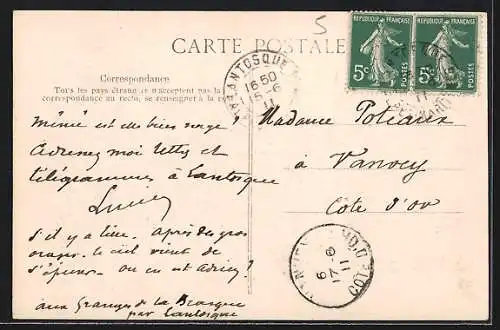 5
CARTE POSTALE
Correspondance
Tous les pays étrangers n'acceptent pas la
correspondance au recto, se renseigner à la
LANTOSQUE
16 50
15-6
11
REPUBLIQUE FRANÇAISE
5c
POSTES
REPUBLIQUE FRANÇAISE
5c
POSTES
Mémé est elle bien sage ?
Adressez moi lettres et
télégrammes à Lantosque
Lucien
S'il y a lieu. après des gros
orages. le ciel vient de
s'épurer. ou en est
aux Granges de la Brasque
par Lantosque
Madame Poteaux
à Vanvey
Côte d'Or
6
17-6
11
COTE